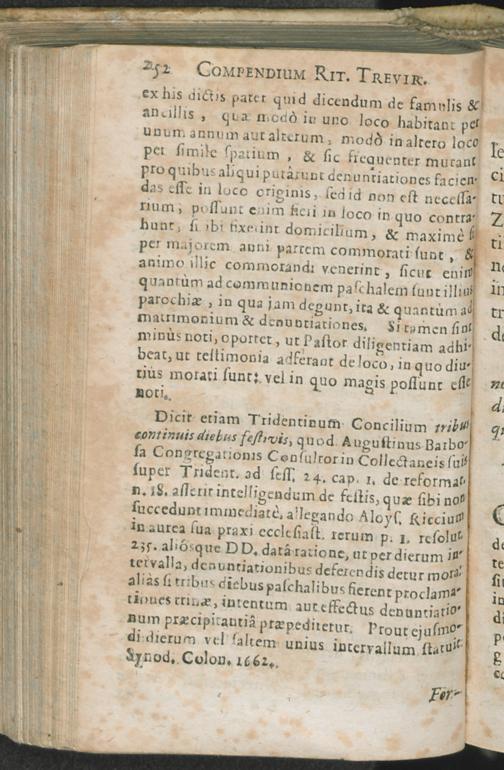 252 COMPENDIUM RIT. TREVIR.
ex his dictis patet quid dicendum de famulis &
ancillis, quæ modò in uno loco habitant per
unum annum aut alterum, modò in altero loco
per simile spatium, & sic frequenter mutant
pro quibus aliqui putârunt denuntiationes facien-
das esse in loco originis, sed id non est necessa-
rium; possunt enim fieri in loco in quo contra-
hunt, si ibi fixerint domicilium, & maximè si
per majorem anni partem commorati sunt, &
animo illic commorandi venerint, sicut enim
quantùm ad communionem paschalem sunt illius
parochiæ, in qua jam degunt, ita & quantùm ad
matrimonium & denuntiationes. Si tamen sint
minùs noti, oportet, ut Pastor diligentiam adhi-
beat, ut testimonia adferant de loco, in quo diu-
tiùs morati sunt: vel in quo magis possunt esse
noti.
Dicit etiam Tridentinum Concilium tribus
continuis diebus festivis, quod Augustinus Barbo-
sa Congregationis Consultor in Collectaneis suis
super Trident. ad sess. 24. cap. 1. de reformat.
n. 18. asserit intelligendum de festis, quæ sibi non
succedunt immediatè, allegando Aloys. Riccium
in aurea sua praxi ecclesiast. rerum p. 1. resolut.
235. aliósque DD. datâ ratione, ut per dierum in-
tervalla, denuntiationibus deferendis detur mora:
aliàs si tribus diebus paschalibus fierent proclama-
tiones trinæ, intentum aut effectus denuntiatio-
num præcipitantiâ præpediretur. Prout ejusmo-
di dierum vel saltem unius intervallum statuit
Synod. Colon. 1662.
For-